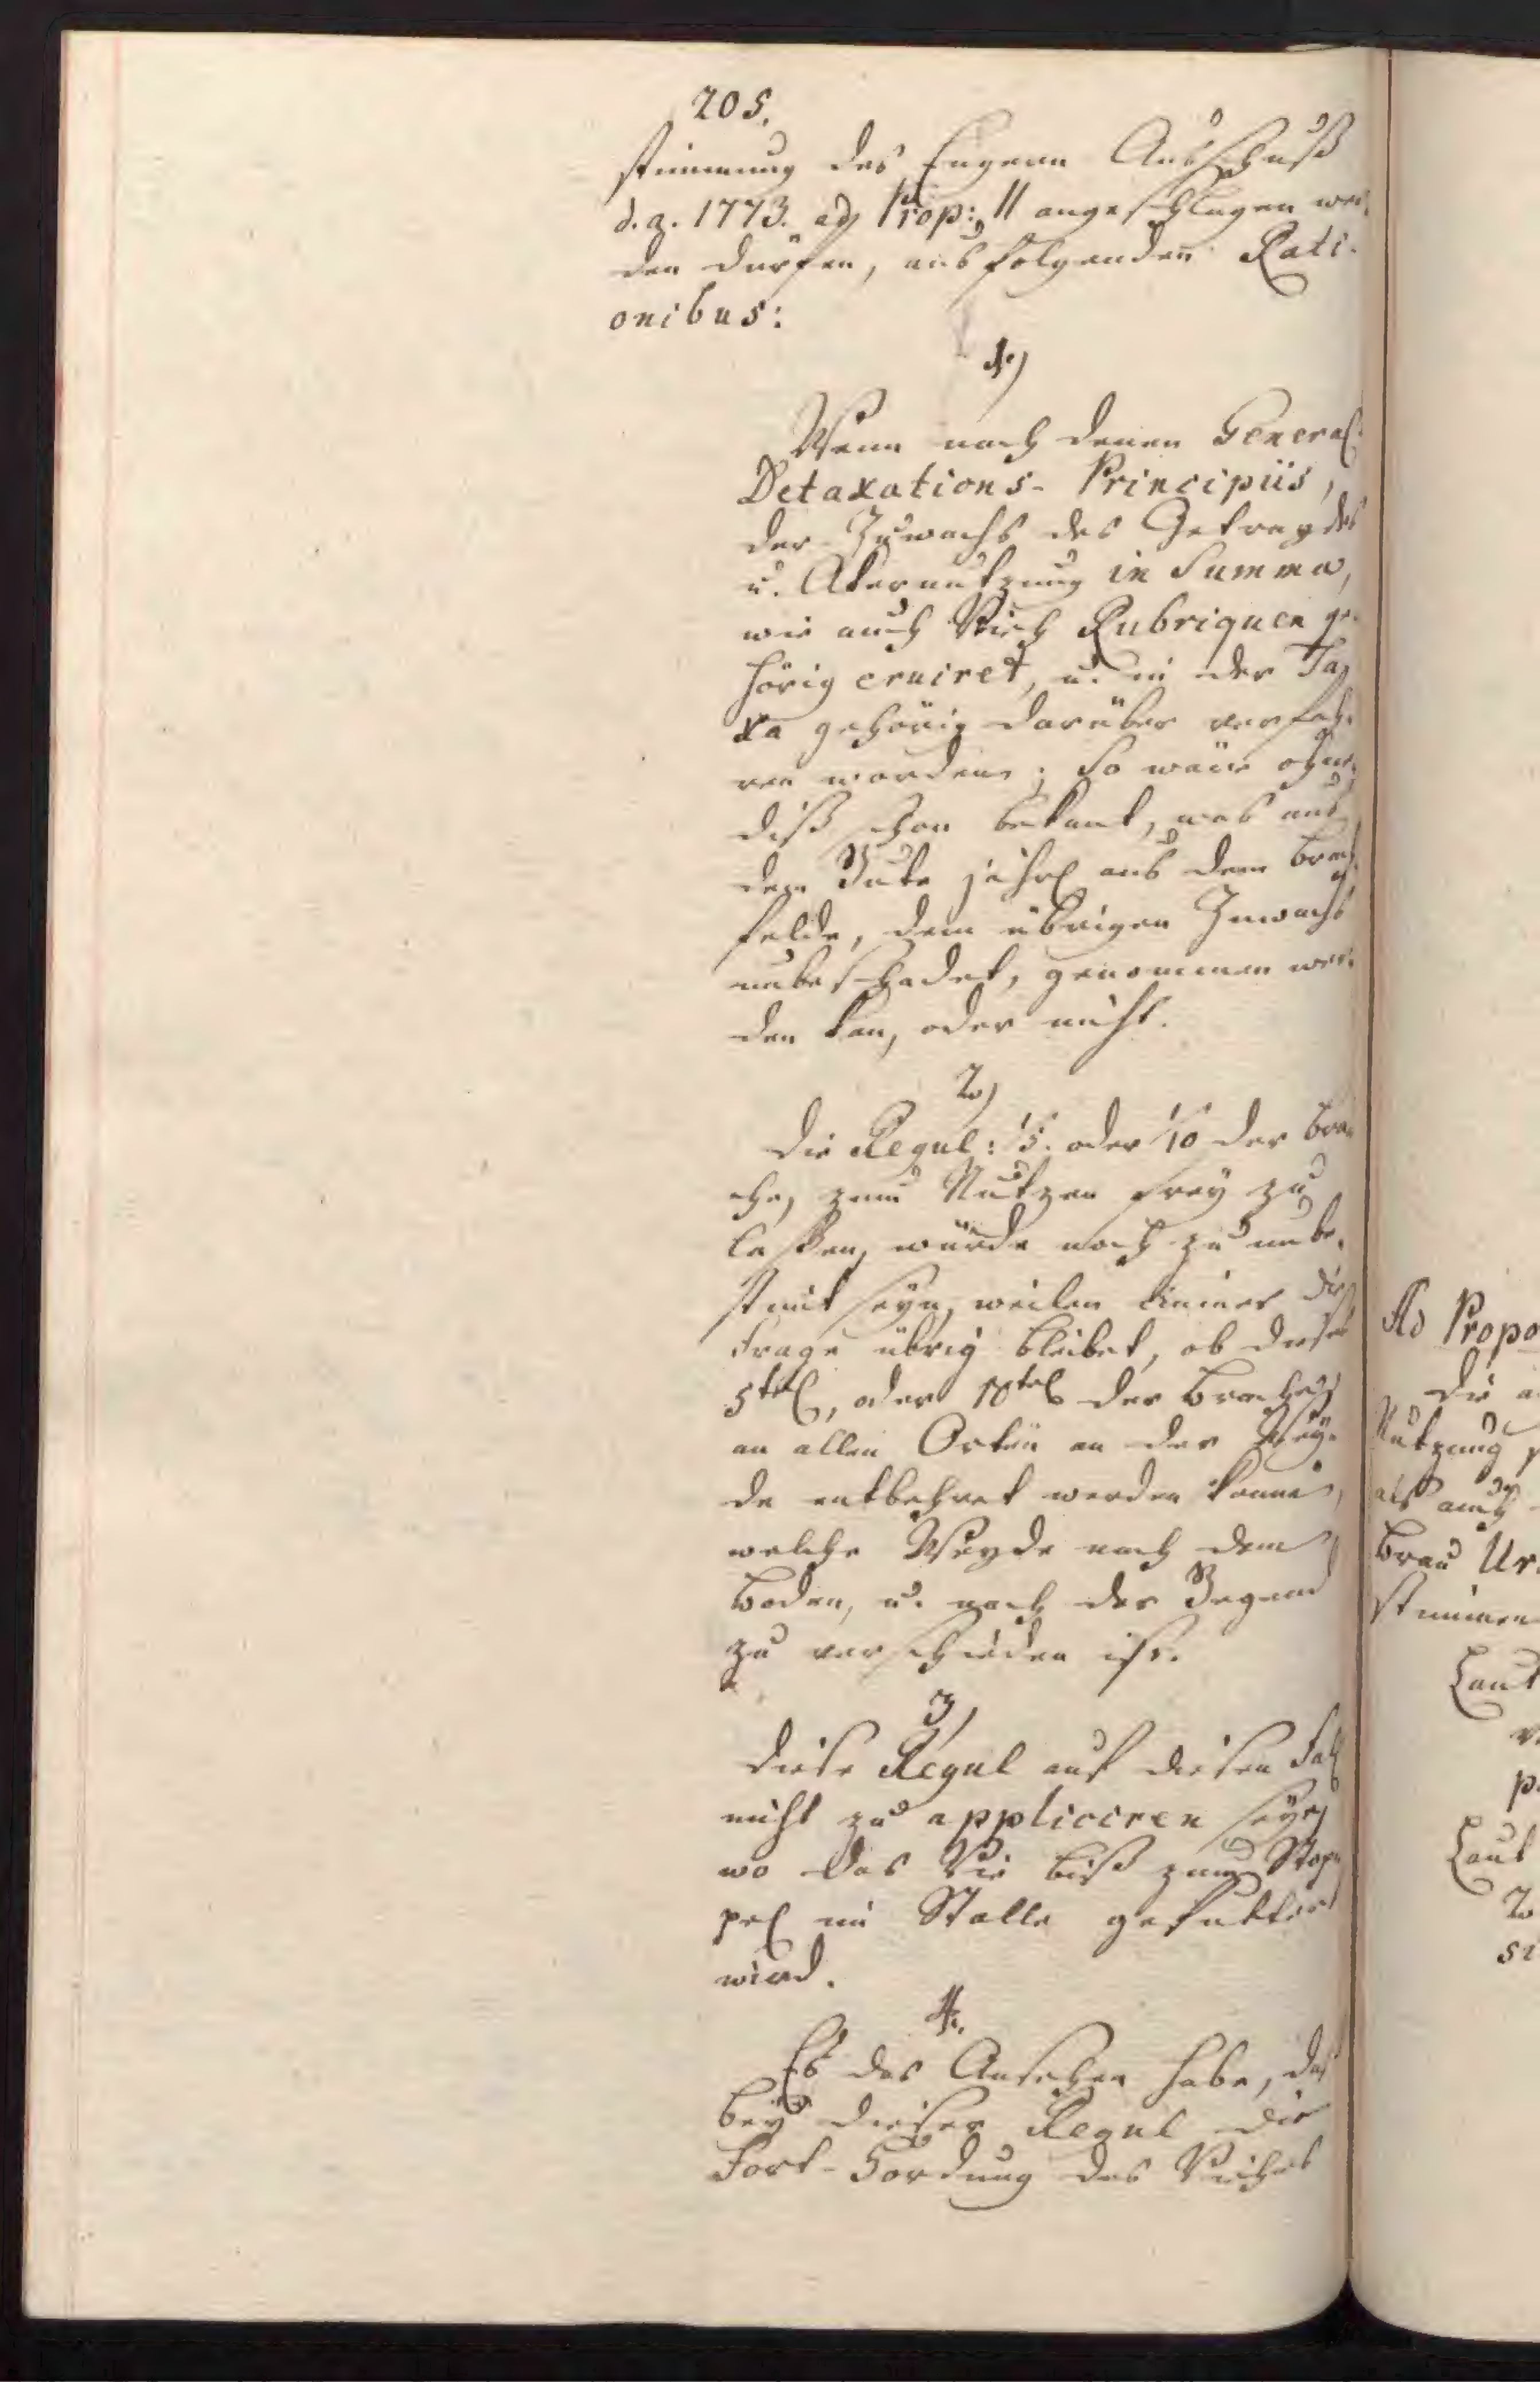 205.
stimmung des Engern Ausschuß
d. a. 1773. ad Prop: 11 angeschlagen wer-
den dürfen, aus folgenden Rati-
onibus:
1.)
Wenn nach denen General-
Detaxations- Principiis,
der Zuwachs des Getraydes
u. Akernutzung in Summa,
wie auch Vieh Rubriquen ge-
hörig eruiret, u. in der Ta-
xa gehörig darüber verfah-
ren worden; So wäre ohne-
diß schon bekant, was auf
dem Gute jährl aus dem Brach-
felde, dem übrigen Zuwachs
unbeschadet, genommen wer-
den kan, oder nicht.
2.)
Die Regul: 1/5. oder 1/10 der Bra-
che, zum Nutzen frey zu
laßen, würde noch zu unbe-
stimt seyn, weilen immer die
Frage übrig bleibet, ob dieses
5tel, oder 10tel der Brache
an allen Orten an der Wey-
de entbehret werden könne,
welche Weyde nach dem
Boden, u. nach der Gegend
zu verschieden ist.
3,
Diese Regul auf diesen Fall
nicht zu appliciren seye,
wo das Vie biß zum Stop-
pel im Stalle gefuttert
wird.
4.
Es das Ansehen habe, daß
bey dieser Regul die
Fort-Hordung des Viehes
Ad Propo
Die a
Nutzung
als auch
Brau Ur
stimmen
Laut
p
Laut
2
si